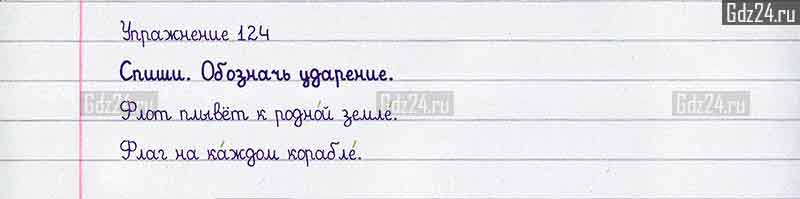 Gdz24.ru
Упражнение 124
Спиши. Обозначь ударение.
Gdz24.ru Gdz24.ru Gdz24.ru
Флот плывёт к родно́й земле.
Флаг на ка́ждом корабле́.